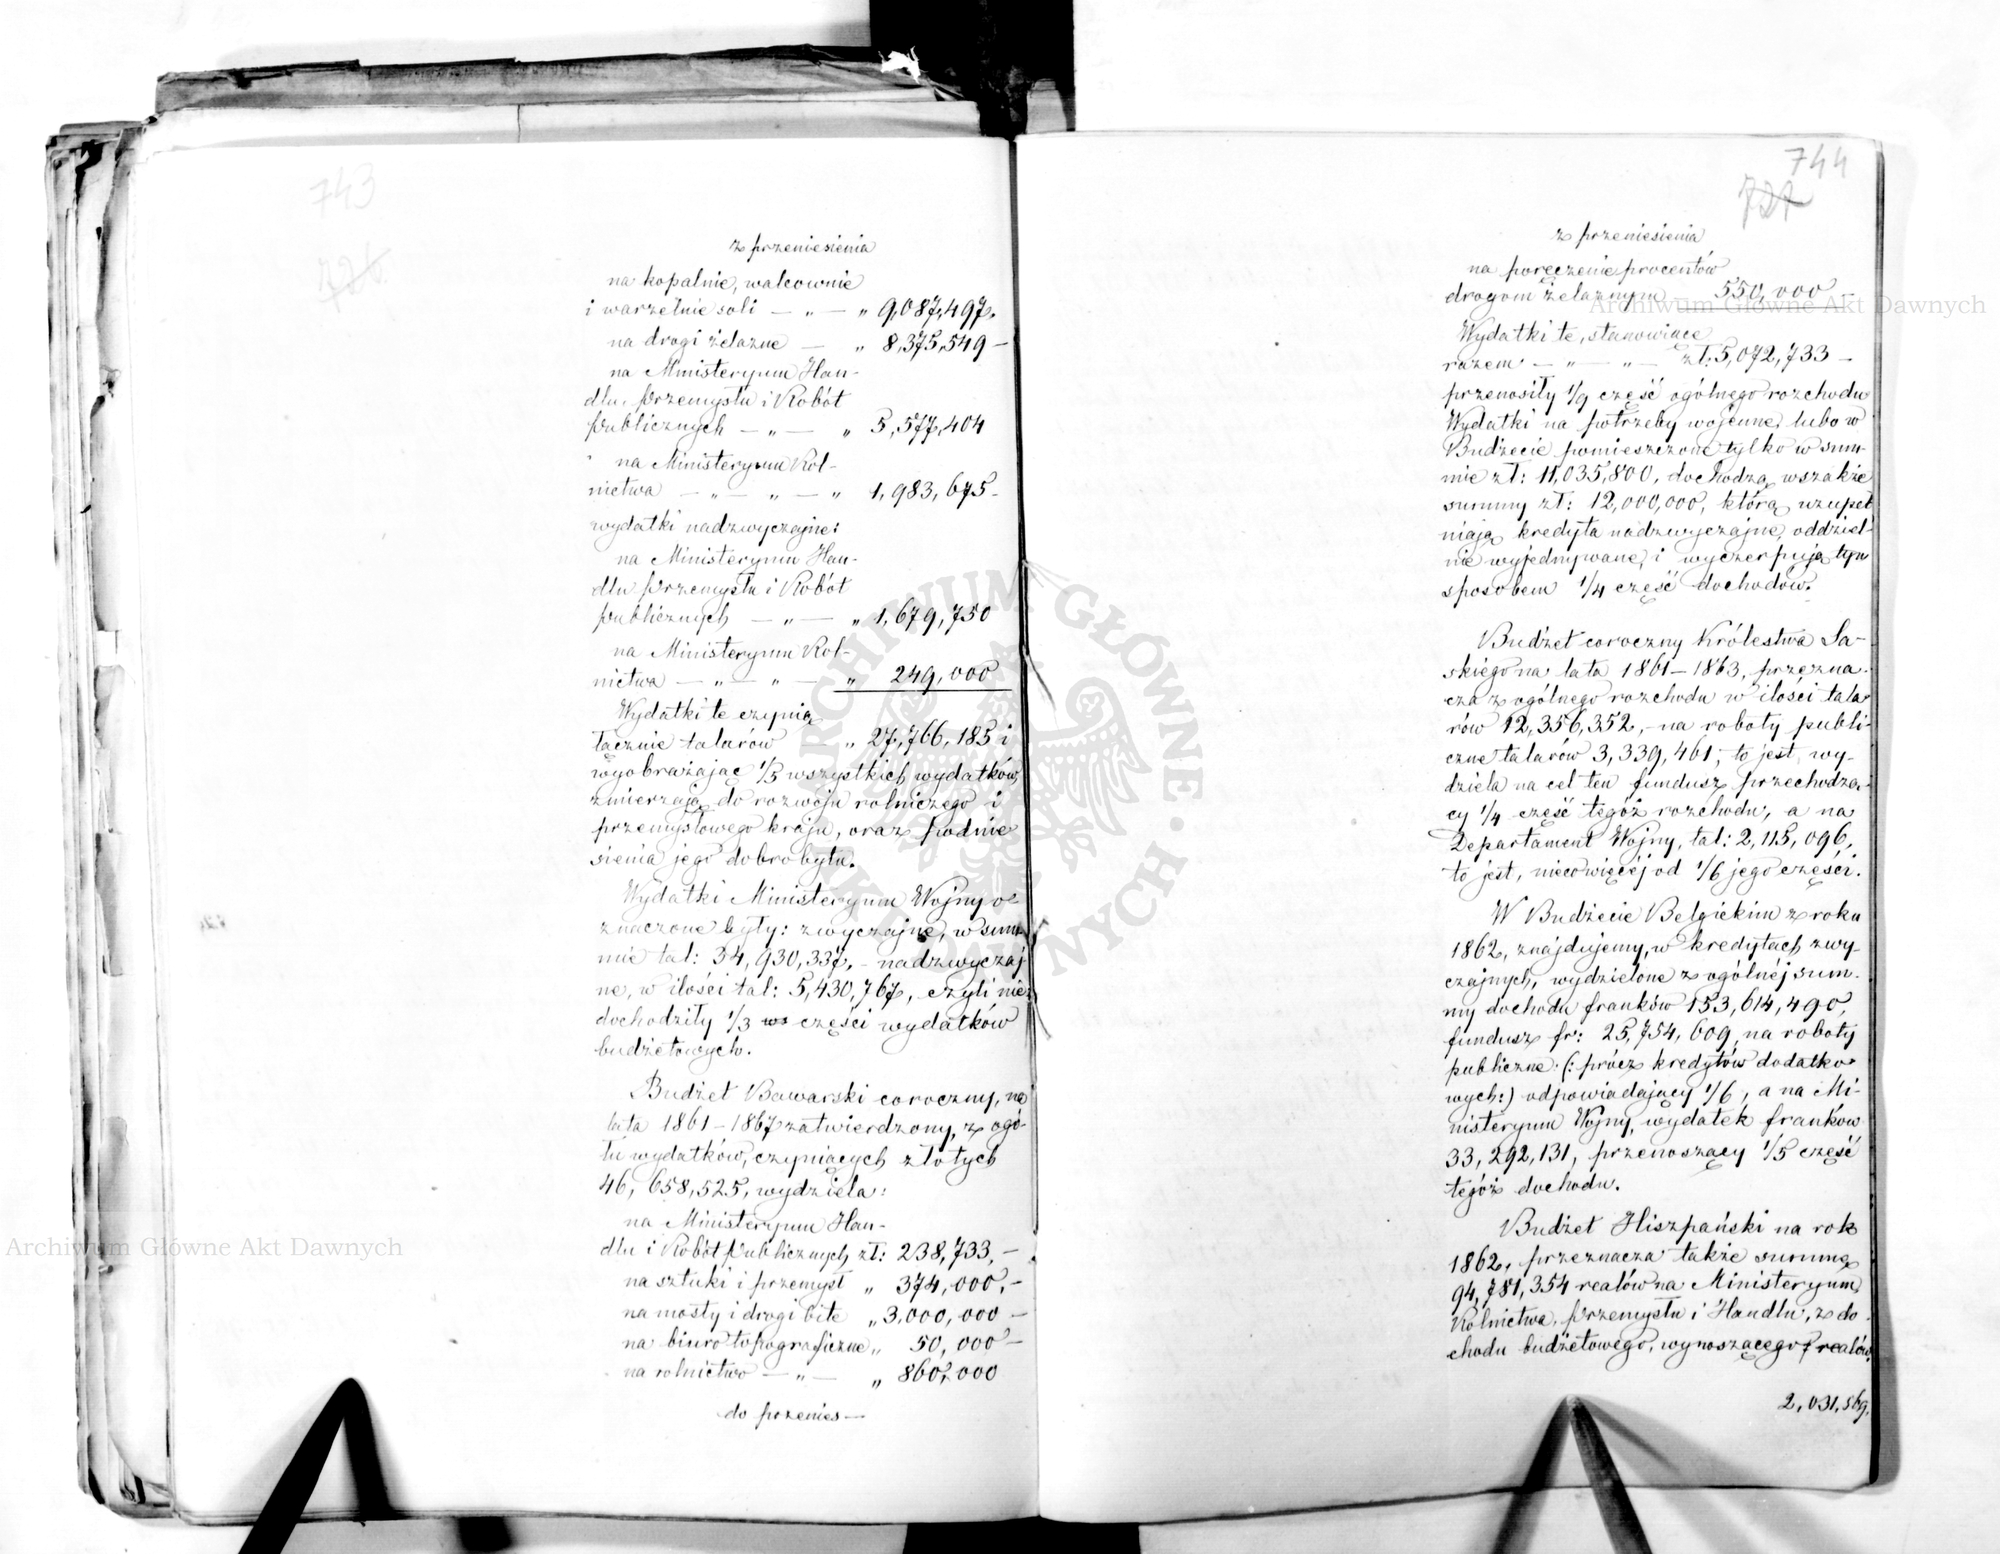 743
726
z przeniesienia
na kopalnie, walcownie
i warzelnie soli — „ — „ 9,087,497.
na drogi żelazne — „ 8,375,549 —
na Ministeryum Han-
dlu, Przemysłu i Robót
Publicznych — „ — „ 5,577,404
na Ministeryum Rol-
nictwa — „ — „ — „ 1,983,675 -
wydatki nadzwyczajne:
na Ministeryum Han-
dlu Przemysłu i Robót
Publicznych — „ — „ 1,679,750
na Ministeryum Rol-
nictwa — „ — „ — „ 249,000
Wydatki te czynią
łącznie talarów — „ 27,766,185 i
wyobrażając 1/5 wszystkich wydatków,
zmierzają do rozwoju rolniczego i
przemysłowego kraju, oraz podnie
sienia jego dobrobytu.
Wydatki Ministeryum Wojny o-
znaczone były: zwyczajne, w sum-
mie tal: 34,930,337, - nadzwyczaj
ne, w ilości tal: 5,430,767, czyli nie
dochodziły 1/3 części wydatków
budżetowych.
Budżet Bawarski coroczny, na
lata 1861-1867 zatwierdzony, z ogó-
łu wydatków, czyniących złotych
46,658,525, wydziela:
na Ministeryum Han-
dlu i Robót Publicznych zł: 238,733, —
na sztuki i przemysł „ 374,000, —
na mosty i drogi bite „ 3,000,000 —
na biuro topograficzne „ 50,000 —
na rolnictwo — „ — „ 860,000
do przenies —
744
727
z przeniesienia
na poręczenie procentów
drogom żelaznym 550,000 —
Wydatki te, stanowiące
razem — „ — „ — zł. 5,072,733 —
przenosiły 1/9 część ogólnego rozchodu
Wydatki na potrzeby wojenne, lubo w
Budżecie pomieszczone tylko w sum-
mie zł: 11,035,800, dochodzą wszakże
summy zł: 12,000,000, którą uzupeł
niają kredyta nadzwyczajne, oddziel-
nie wyjednywane, i wyczerpują tym
sposobem 1/4 część dochodów.
Budżet coroczny Królestwa Sa-
skiego na lata 1861-1863, przezna-
cza z ogólnego rozchodu w ilości tala-
rów 12,356,352, - na roboty publi-
czne talarów 3,339,461, to jest, wy-
dziela na cel ten fundusz przechodzą-
cy 1/4 część tegóż rozchodu, a na
Departament Wojny, tal: 2,115,096,
to jest, niecowięcej od 1/6 jego części.
W Budżecie Belgickim z roku
1862, znajdujemy, w kredytach zwy-
czajnych, wydzielone z ogólnéj sum-
my dochodu franków 153,614,490,
fundusz fr: 25,754,609, na roboty
publiczne (: prócz kredytów dodatko-
wych:) odpowiadający 1/6, a na Mi-
nisteryum Wojny, wydatek franków
33,292,131, przenoszący 1/5 część
tegóż dochodu.
Budżet Hiszpański na rok
1862, przeznacza także summę
94,781,354 realów na Ministeryum
Rolnictwa, Przemysłu i Handlu, z do-
chodu budżetowego, wynoszącego realów
2,031,569,
Archiwum Główne Akt Dawnych
Archiwum Główne Akt Dawnych
ARCHIWUM GŁÓWNE AKT DAWNYCH